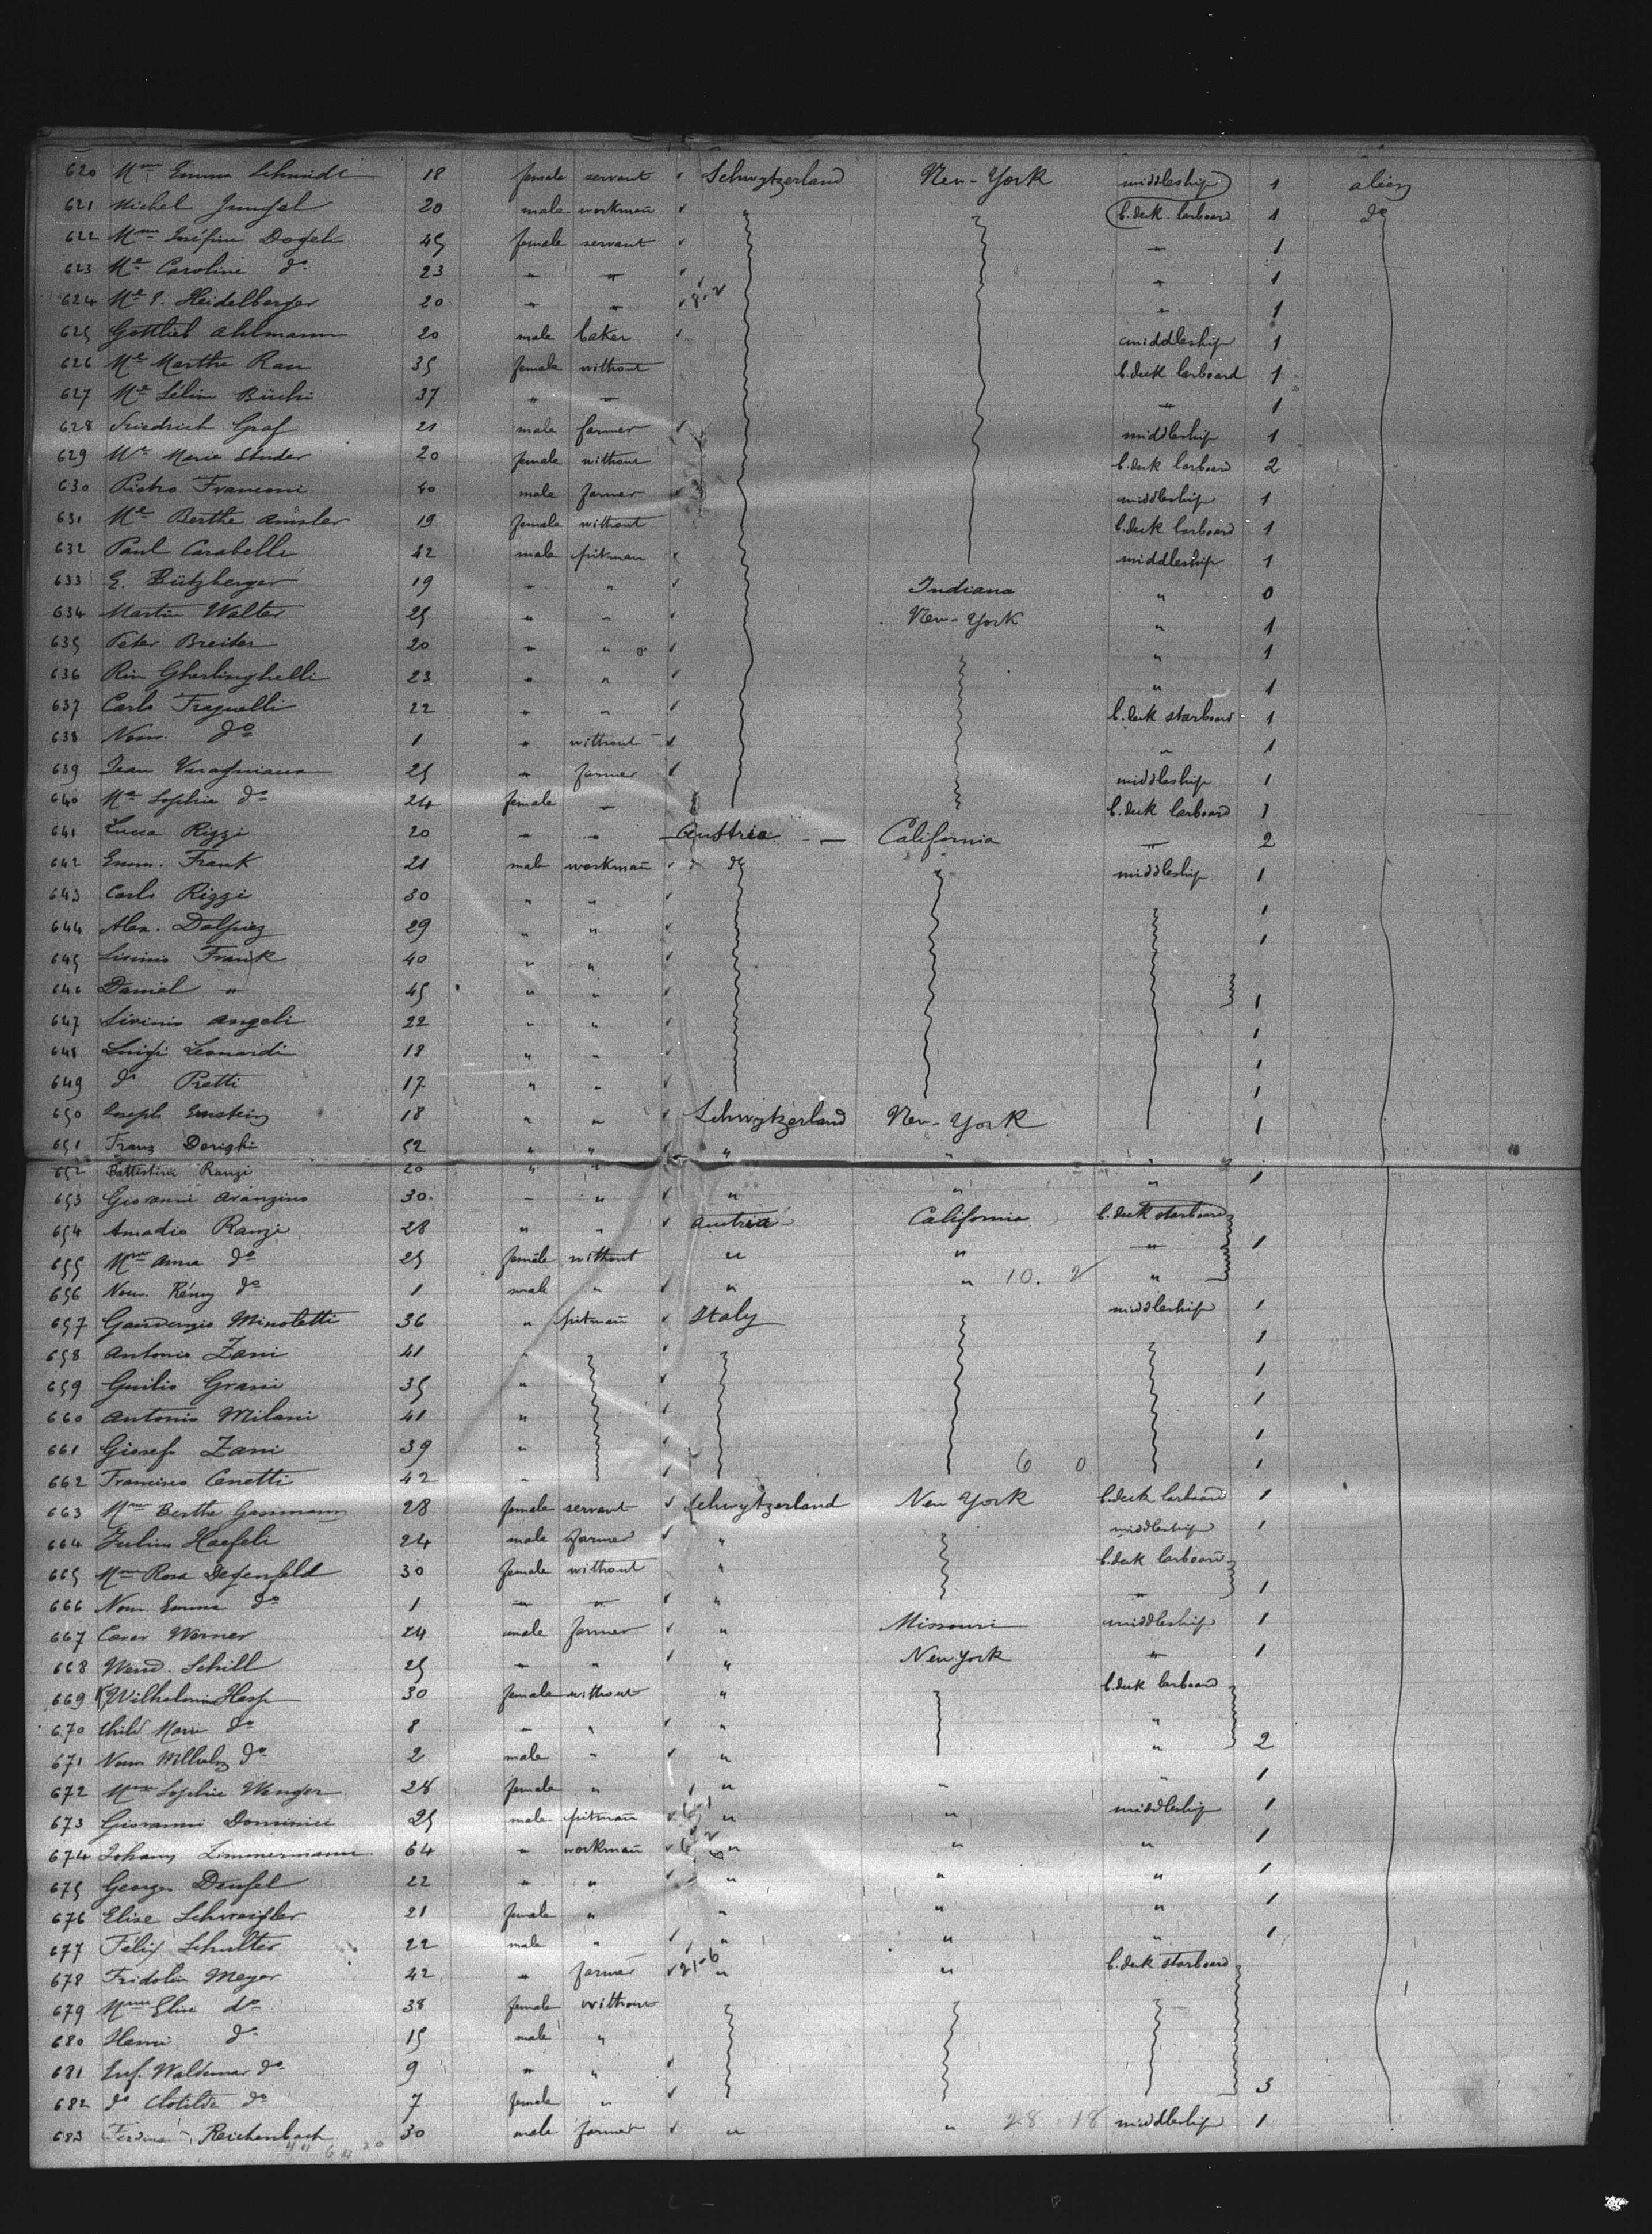 620 Mme Emma Schmidt 18 female servant Schwytzerland New-York middleship 1 alien
621 Michel Jungel 20 male workman " b.deck larboard 1 do
622 Mme Joséfine Dogele 45 female servant " 1
623 Me Caroline do 23 " " " 1
624 Me E. Heidelberger 20 " " " 1
625 Gottlieb Ahlmann 20 male baker middleship 1
626 Me Marthe Rau 35 female without b.deck larboard 1
627 Me Séline Büchi 37 " " " 1
628 Friedrich Graf 21 male farmer middleship 1
629 Me Marie Studer 20 female without b.deck larboard 2
630 Pietro Franconi 40 male farmer middleship 1
631 Me Berthe Amsler 19 female without b.deck larboard 1
632 Paul Carabelli 42 male pitman middleship 1
633 E. Bützberger 19 " " Indiana " 0
634 Martin Walter 25 " " New-York " 1
635 Peter Breiter 20 " " " 1
636 Rin Gherlinghelli 23 " " " 1
637 Carlo Fragnelli 22 " " b.deck starboard 1
638 Nour. do 1 " without " 1
639 Jean 25 " farmer middleship 1
640 Me Sophie do 24 female " b.deck larboard 1
641 Lucca Rizzi 20 " " Austria California " 2
642 Emm. Frank 21 male workman do middleship 1
643 Carlo Rizzi 30 " " 1
644 Alex. Dalpiez 29 " " 1
645 Livinio Frank 40 " "
646 Daniel " 45 " " 1
647 Livinio Angeli 22 " " 1
648 Luigi Leonardi 18 " " 1
649 do Pretti 17 " " 1
650 Joseph Emstein 18 " " Schwytzerland New-York 1
651 Franz Derighi 52 " " " "
652 Battistina Ranzi 20 " " " 1
653 Giovanni Aranzino 30 " " " " "
654 Amadio Ranzi 28 " " Austria California b.deck starboard
655 Mme Anna do 25 female without " " " 1
656 Nour. Rémy do 1 male " " " 10. 2 "
657 Gaudenzio Minoletti 36 " pitman Italy middleship 1
658 Antonio Zani 41 " 1
659 Guilio Grassi 35 " 1
660 Antonio Milani 41 " 1
661 Giosef Zani 39 " 1
662 Francisco Cenetti 42 " 6 0 1
663 Mme Berthe Gassmann 28 female servant Schwytzerland New York b.deck larboard 1
664 Julius Haefeli 24 male farmer " middleship 1
665 Mme Rosa Degenfeld 30 female without " b.deck larboard
666 Nour. Emma do 1 " " " " 1
667 Caver Werner 24 male farmer " Missouri middleship 1
668 Wend. Schill 25 " " " New York " 1
669 Wilhelmin Hess 30 female without " b.deck larboard
670 Child Marie do 8 " " " "
671 Nour Wilhelm do 2 male " " " 2
672 Mme Sophie Wenger 28 female " " " " 1
673 Giovanni Dominici 25 male pitman " " middleship 1
674 Johann Zimmermann 64 " workman " " " 1
675 Georges Deufel 22 " " " " " 1
676 Elise Schweizler 21 female " " " " 1
677 Félix Schulter 22 male " " " " 1
678 Fridolin Meyer 42 " farmer " " b.deck starboard
679 Mme Elise do 38 female without
680 Henri do 15 male "
681 Enf. Waldemar do 9 " "
682 do Clotilde do 7 female " 3
683 Ferdinand Reichenbach 30 male farmer " " 28 18 middleship 1